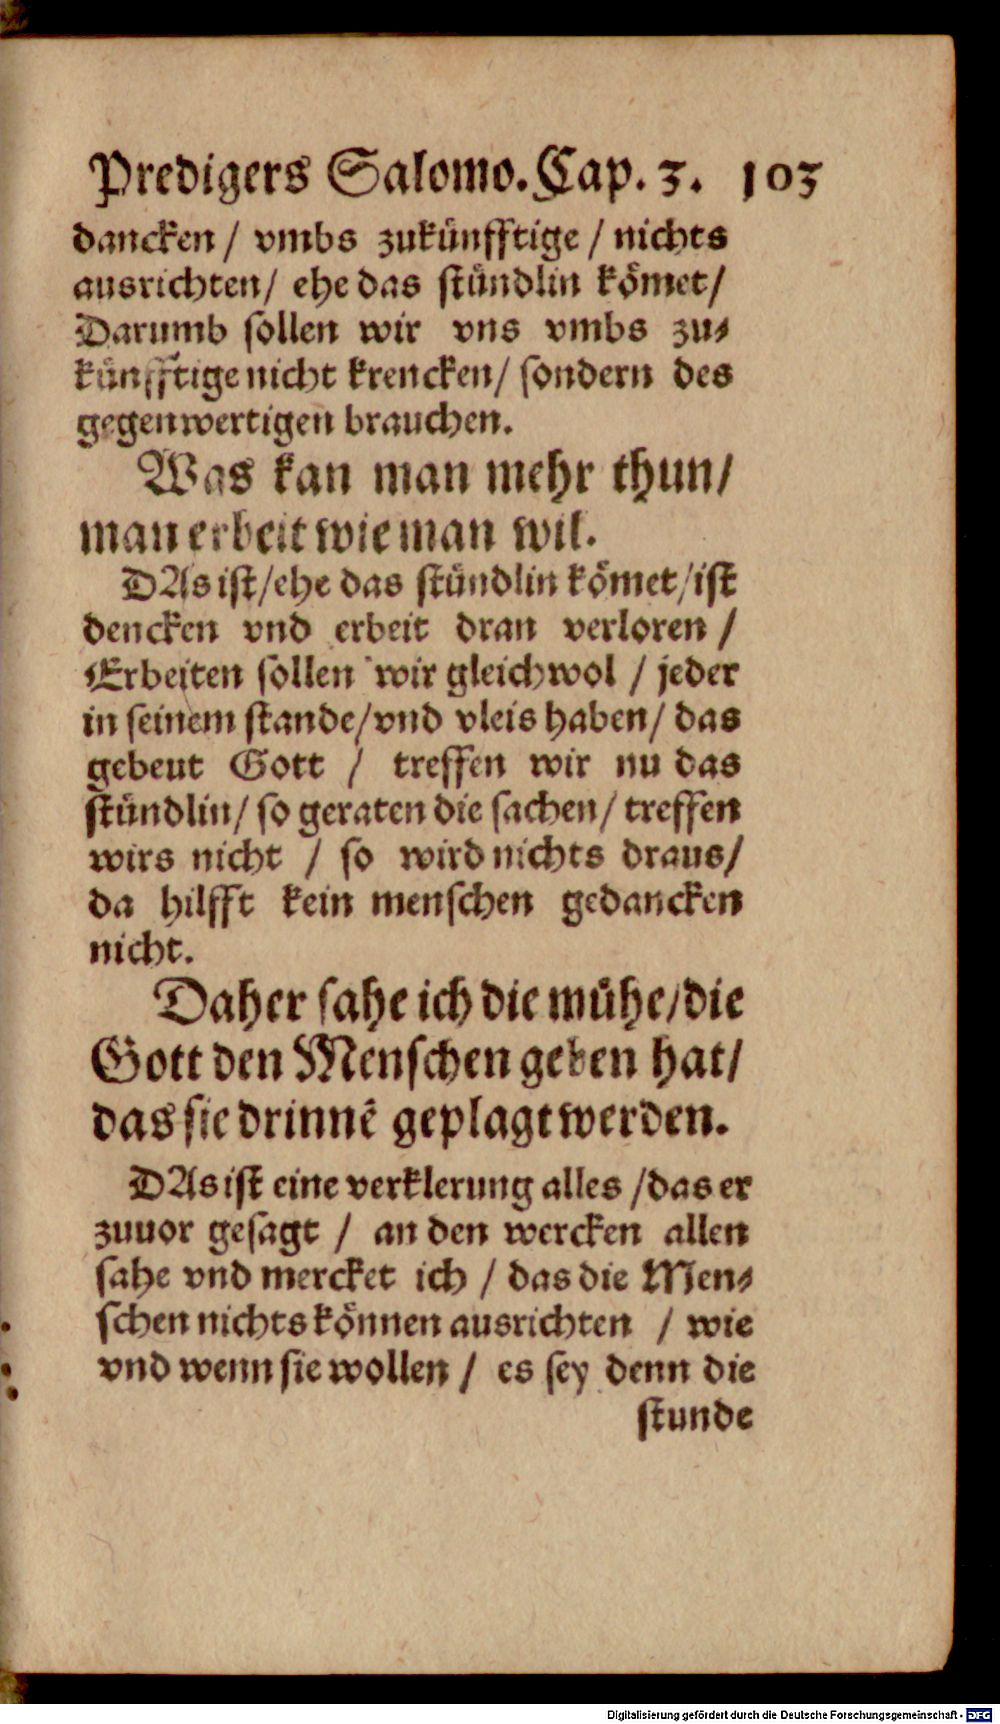 Predigers Salomo. Cap. 3. 103
dancken / vmbs zukünfftige / nichts
ausrichten / ehe das stündlin kömet /
Darumb sollen wir vns vmbs zu-
künfftige nicht krencken / sondern des
gegenwertigen brauchen.
Was kan man mehr thun /
man erbeit wie man wil.
DAs ist / ehe das stündlin kömet / ist
dencken vnd erbeit dran verloren /
Erbeiten sollen wir gleichwol / jeder
in seinem stande / vnd vleis haben / das
gebeut Gott / treffen wir nu das
stündlin / so geraten die sachen / treffen
wirs nicht / so wird nichts draus /
da hilfft kein menschen gedancken
nicht.
Daher sahe ich die mühe / die
Gott den Menschen geben hat /
das sie drinnē geplagt werden.
DAs ist eine verklerung alles / das er
zuuor gesagt / an den wercken allen
sahe vnd mercket ich / das die Men-
schen nichts können ausrichten / wie
vnd wenn sie wollen / es sey denn die
stunde
Digitalisierung gefördert durch die Deutsche Forschungsgemeinschaft - DFG